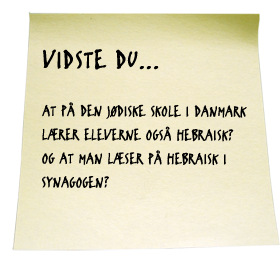 VIDSTE DU...
AT PÅ DEN JØDISKE SKOLE I DANMARK
LÆRER ELEVERNE OGSÅ HEBRAISK?
OG AT MAN LÆSER PÅ HEBRAISK I
SYNAGOGEN?